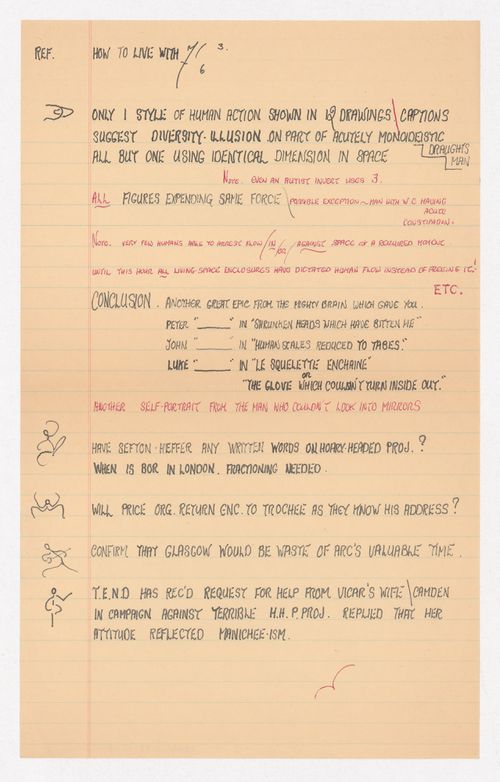 REF. HOW TO LIVE WITH 7/6 3.
ONLY 1 STYLE OF HUMAN ACTION SHOWN IN 19 DRAWINGS \ CAPTIONS
SUGGEST DIVERSITY. ILLUSION ON PART OF ACUTELY MONOIDEISTIC DRAUGHTS
ALL BUT ONE USING IDENTICAL DIMENSION IN SPACE MAN
NOTE. EVEN AN AUTIST INVERT USES 3.
ALL FIGURES EXPENDING SAME FORCE \ POSSIBLE EXCEPTION - MAN WITH W.C HAVING
ACUTE
CONSTIPATION.
NOTE. VERY FEW HUMANS ABLE TO ARREST FLOW / IN / OR / AGAINST SPACE OF A REQUIRED MOTIVE.
UNTIL THIS HOUR ALL LIVING SPACE ENCLOSURES HAVE DICTATED HUMAN FLOW INSTEAD OF FREEING IT.
ETC.
CONCLUSION. ANOTHER GREAT EPIC FROM THE MIGHTY BRAIN WHICH GAVE YOU.
PETER "______" IN "SHRUNKEN HEADS WHICH HAVE BITTEN ME"
JOHN "______" IN "HUMAN SCALES REDUCED TO TABES."
LUKE "______" IN "LE SQUELETTE ENCHAINE"
OR
"THE GLOVE WHICH COULDN'T TURN INSIDE OUT."
ANOTHER SELF-PORTRAIT FROM THE MAN WHO COULDN'T LOOK INTO MIRRORS
HAVE SEFTON-HEFFER ANY WRITTEN WORDS ON HOARY-HEADED PROJ. ?
WHEN IS BOR IN LONDON. FRACTIONING NEEDED.
WILL PRICE ORG. RETURN ENC. TO TROCHEE AS THEY KNOW HIS ADDRESS ?
CONFIRM THAT GLASGOW WOULD BE WASTE OF ARC'S VALUABLE TIME.
T.E.N.D HAS REC'D REQUEST FOR HELP FROM VICAR'S WIFE \ CAMDEN
IN CAMPAIGN AGAINST TERRIBLE H.H.P. PROJ. REPLIED THAT HER
ATTITUDE REFLECTED MANICHEE-ISM.